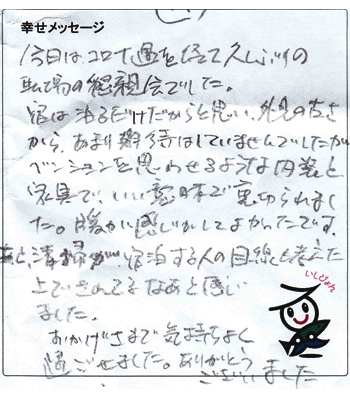 幸せメッセージ
今日は、コロナ過を経て久しぶりの
職場の懇親会でした。
宿は泊るだけだからと思い、外見の古さ
から、あまり期待はしていませんでしたが
ペンションを思わせるような内装と
家具で、いい意味で裏切られまし
た。暖かい感じがしてよかったです。
あと、清掃が、宿泊する人の目線も考えた
上でされてるなあと感じ
ました。
おかげさまで気持ちよく
過ごせました。ありがとう
ございました